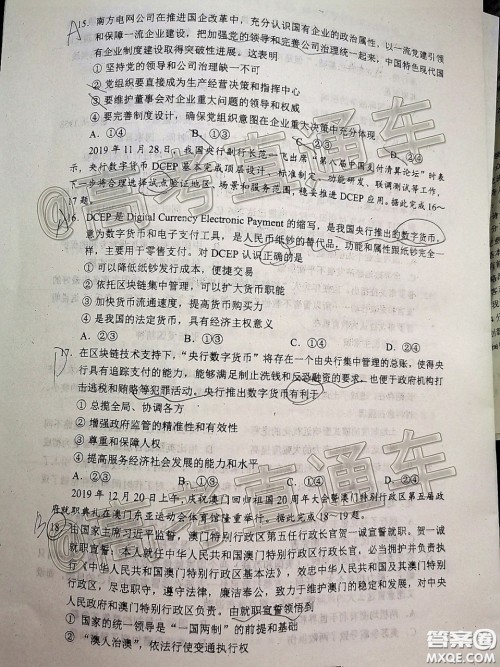 A15. 南方电网公司在推进国企改革中，充分认识国有企业的政治属性，以一流党建引领
和保障一流企业建设，把加强党的领导和完善公司治理统一起来，中国特色现代国
有企业制度建设取得突破性进展。这表明
① 坚持党的领导和公司治理缺一不可
② 党组织要直接成为生产经营决策和指挥中心
③ 要维护董事会对企业重大问题的领导和权威
④ 要完善制度设计，确保党组织意图在企业重大决策中充分体现
A. ①④ B. ①③ C. ②④ D. ②③
2019 年 11 月 28 日，我国央行副行长范一飞出席“第八届中国支付清算论坛”时表
示，央行数字货币 DCEP 基本完成顶层设计，标准制定、功能研发、联调测试等工作，
下一步将合理选择试点验证地区、场景和服务范围，稳妥推进 DCEP 应用。据此完成 16～
17 题。
A16. DCEP 是 Digital Currency Electronic Payment 的缩写，是我国央行推出的数字货币，
意为数字货币和电子支付工具，是人民币纸钞的替代品，功能和属性跟纸钞完全一
样，主要用于零售支付。对 DCEP 认识正确的是
① 可以降低纸钞发行成本，便捷交易
② 依托区块链集中管理，可以扩大货币职能
③ 加快货币流通速度，提高货币购买力
④ 是我国的法定货币，具有经济主权意义
A. ②③ B. ①③ C. ②④ D. ①④
D17. 在区块链技术支持下，“央行数字货币”将存在一个由央行集中管理的总账，使得央
行具有追踪支付的能力，能够满足制止洗钱和反恐融资的要求，也便于政府机构打
击逃税和贿赂等犯罪活动。央行推出数字货币有利于
① 总揽全局、协调各方
② 增强政府监管的精准性和有效性
③ 尊重和保障人权
④ 提高服务经济社会发展的能力和水平
A. ②③ B. ①③ C. ①④ D. ②④
2019 年 12 月 20 日上午，庆祝澳门回归祖国 20 周年大会暨澳门特别行政区第五届政
府就职典礼在澳门东亚运动会体育馆隆重举行。据此完成 18～19 题。
B18. 由国家主席习近平监督，澳门特别行政区第五任行政长官贺一诚宣誓就职。贺一诚
就职宣誓：本人就任中华人民共和国澳门特别行政区行政长官，必当拥护并负责执
行《中华人民共和国澳门特别行政区基本法》，效忠中华人民共和国及其澳门特别
行政区，尽忠职守，遵守法律，廉洁奉公，致力于维护澳门的稳定和发展，对中央
人民政府和澳门特别行政区负责。由就职宣誓领悟到
① 国家的统一领导是“一国两制”的前提和基础
② “澳人治澳”，依法行使变通执行权
高考直通车
高考直通车
答案圈
MXQE.COM